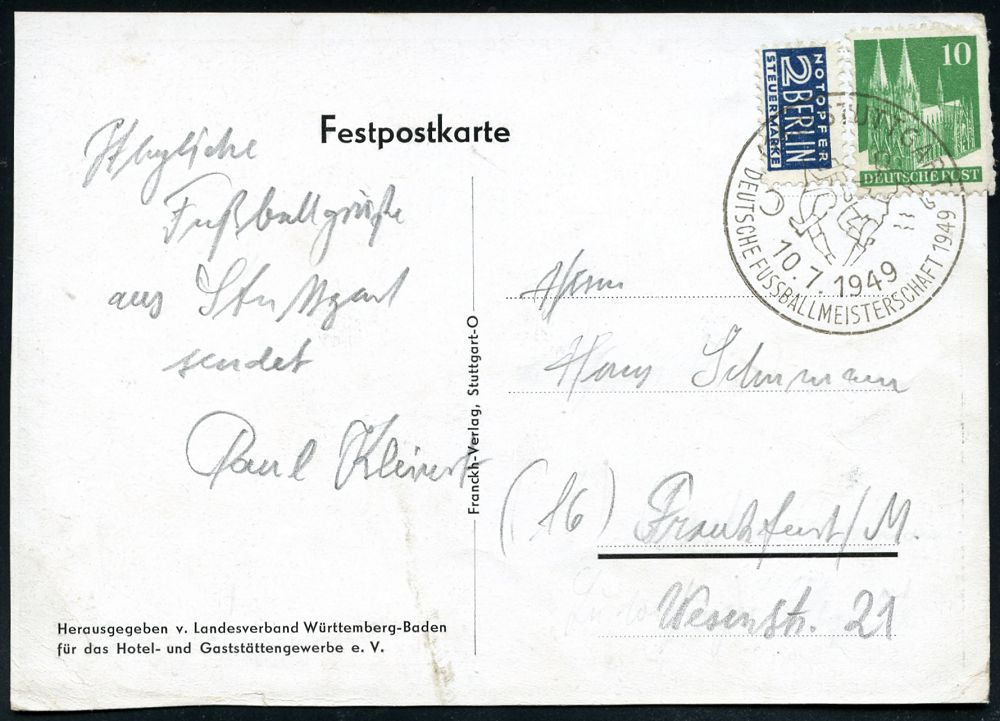 Festpostkarte
Fußballgrüße
aus Stuttgart
sendet
Paul Kleinert
Herausgegeben v. Landesverband Württemberg-Baden
für das Hotel- und Gaststättengewerbe e. V.
Franckh-Verlag, Stuttgart-O
NOTOPFER
2 BERLIN
STEUERMARKE
10
DEUTSCHE POST
STUTTGART
10.7.1949
DEUTSCHE FUSSBALLMEISTERSCHAFT 1949
Herrn
Hans Schurmann
(16) Frankfurt/M.
Weserstr. 21